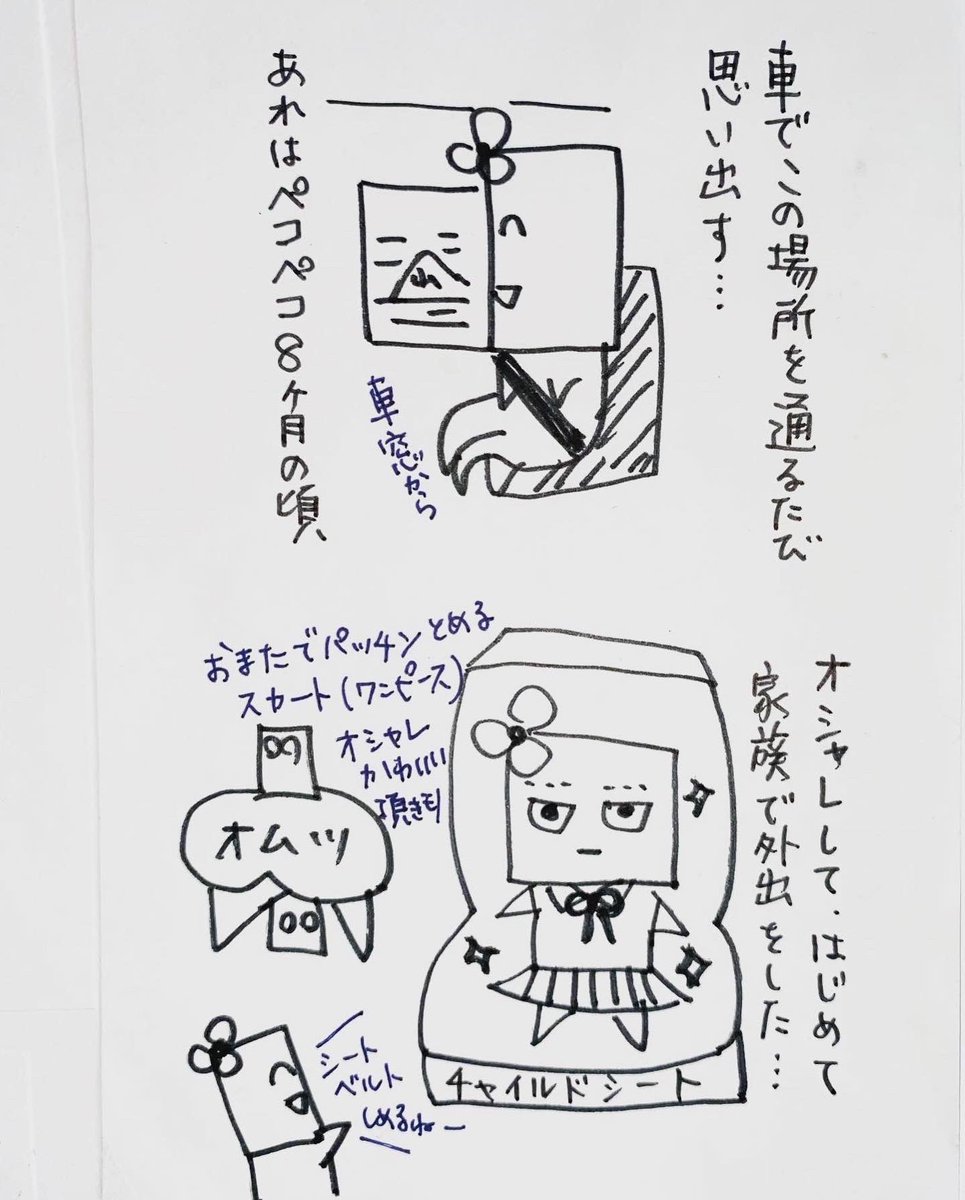 車でこの場所を通るたび
思い出す…
山
車窓から
あれはペコペコ8ヶ月の頃
オシャレして、はじめて
家族で外出をした…
チャイルドシート
おまたでパッチンとめる
スカート(ワンピース)
オシャレ
かわいい
オムツ
シート
ベルト
しめるねー